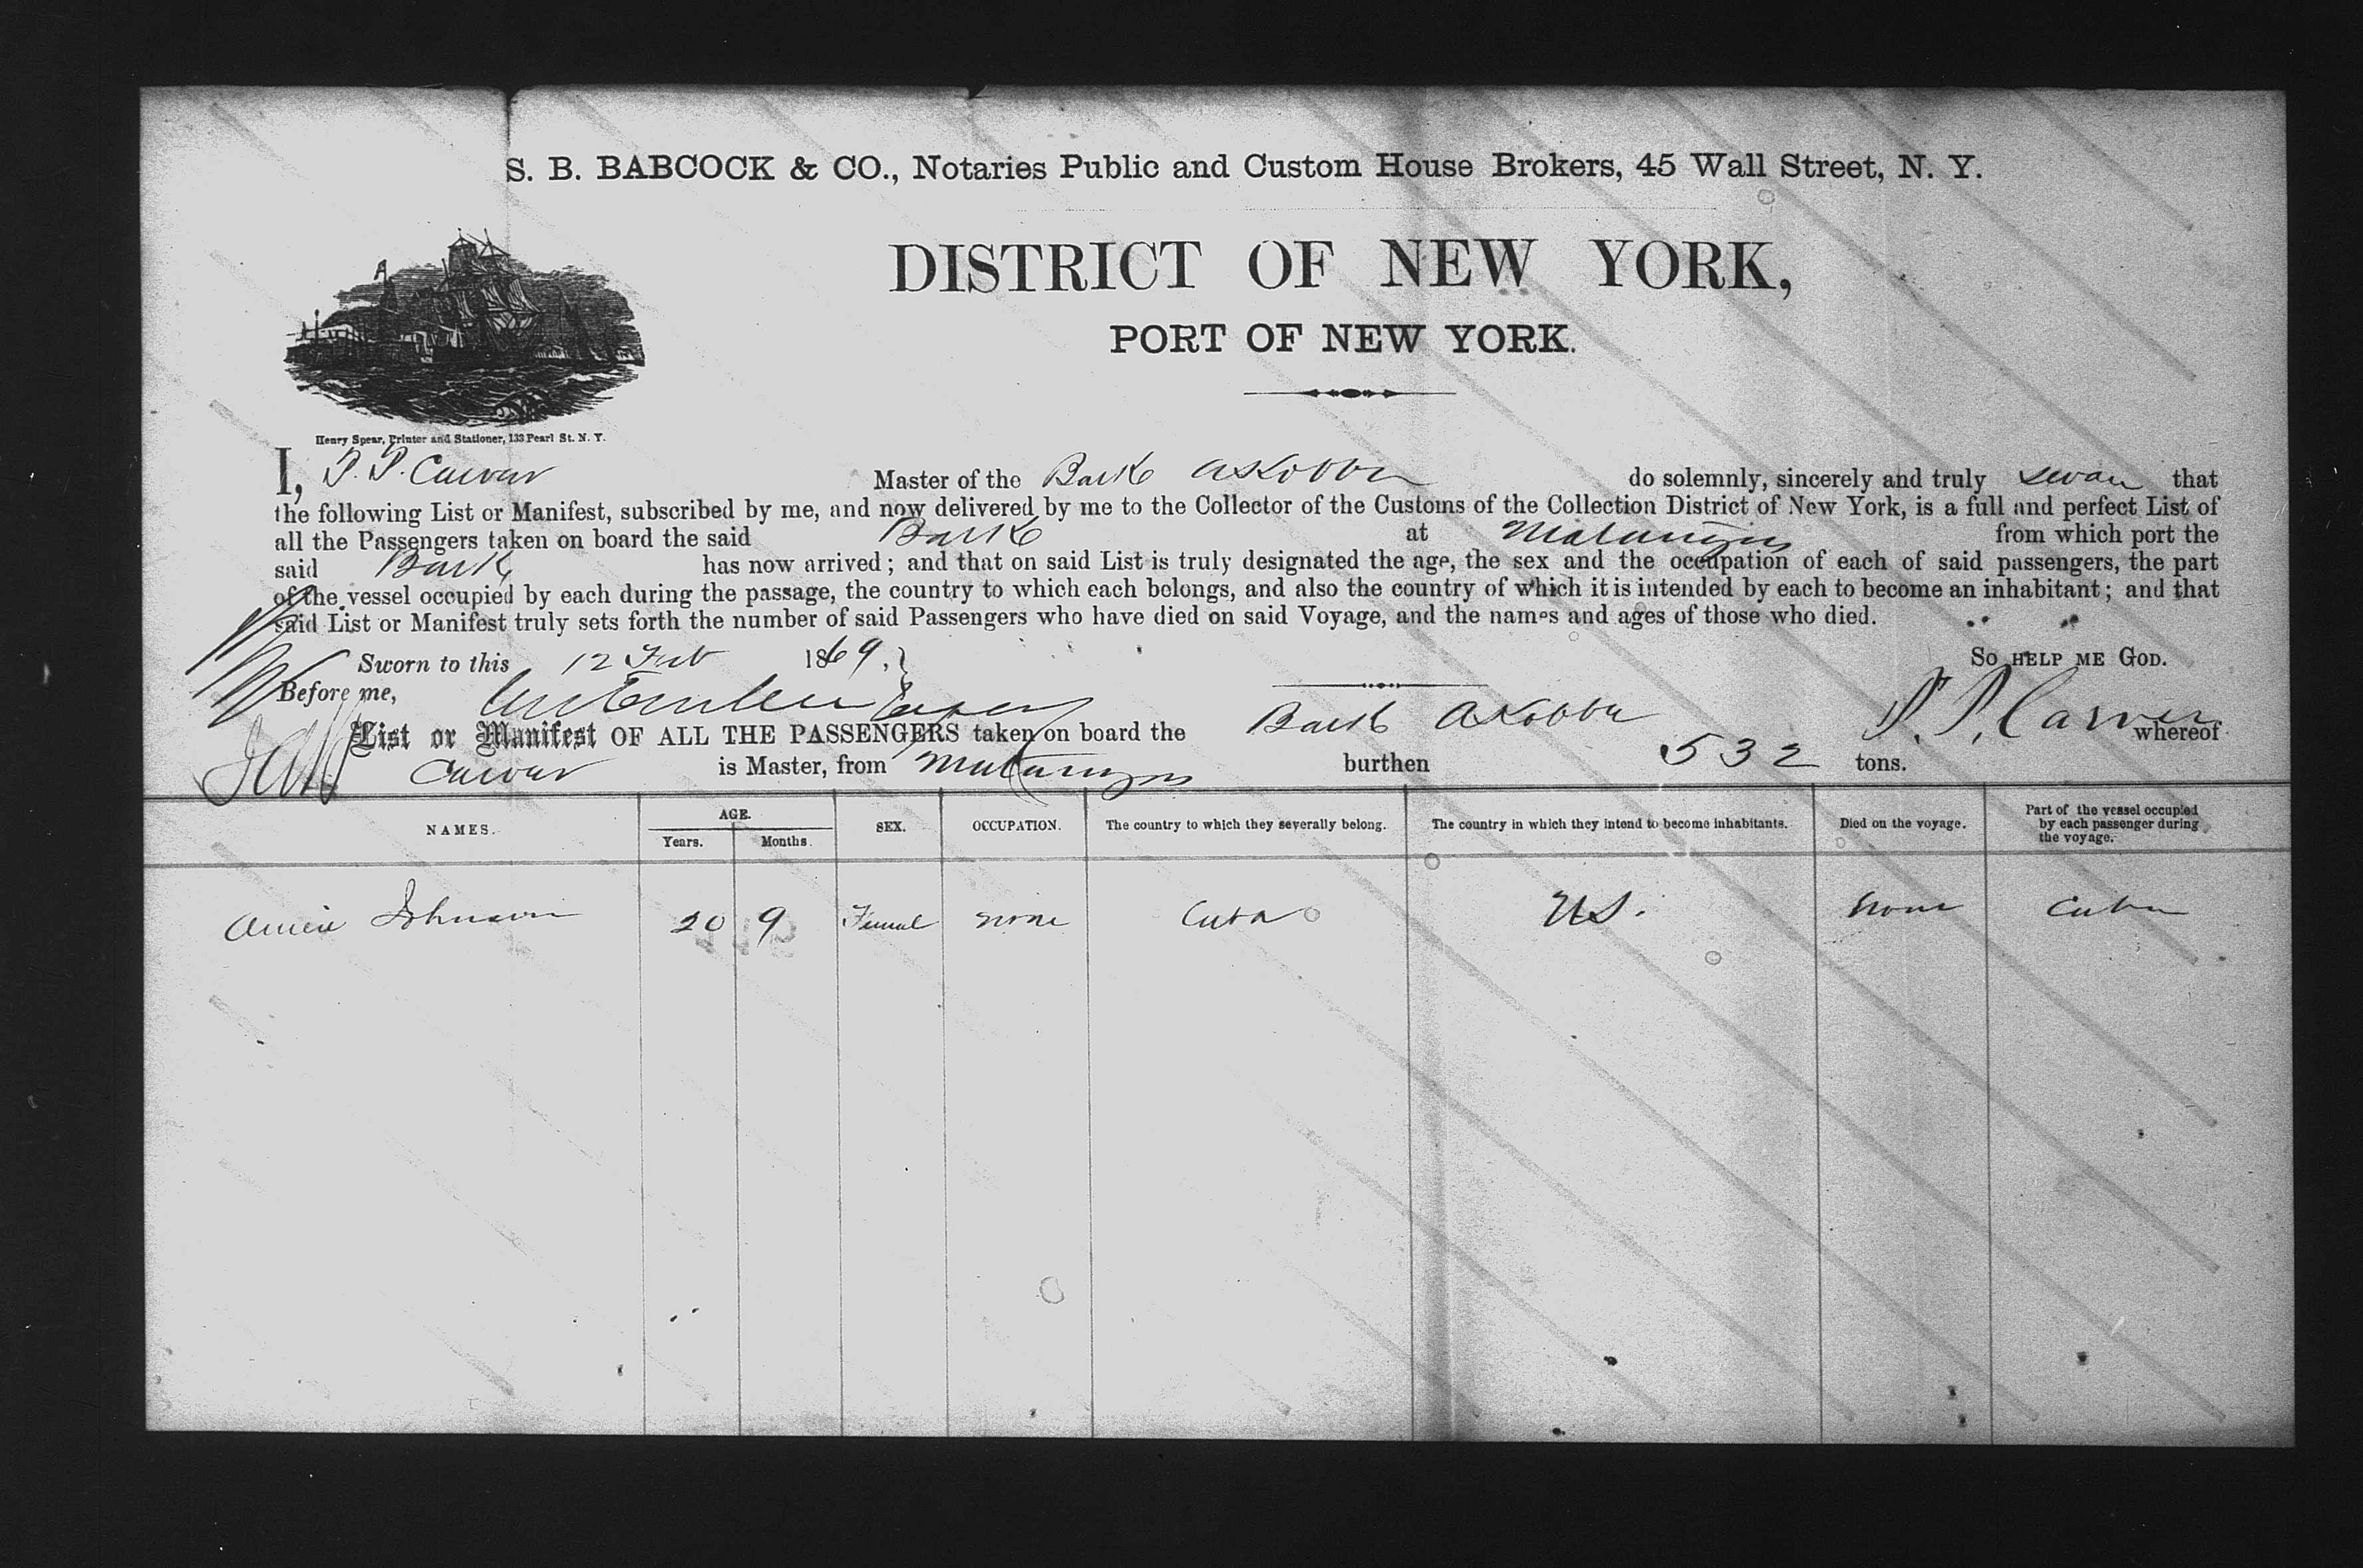 S. B. BABCOCK & CO., Notaries Public and Custom House Brokers, 45 Wall Street, N. Y.
DISTRICT OF NEW YORK,
PORT OF NEW YORK.
Henry Spear, Printer and Stationer, 133 Pearl St. N. Y.
I, P. P. Carver Master of the Bark do solemnly, sincerely and truly swear that
the following List or Manifest, subscribed by me, and now delivered by me to the Collector of the Customs of the Collection District of New York, is a full and perfect List of
all the Passengers taken on board the said Bark at Matanzas from which port the
said Bark has now arrived; and that on said List is truly designated the age, the sex and the occupation of each of said passengers, the part
of the vessel occupied by each during the passage, the country to which each belongs, and also the country of which it is intended by each to become an inhabitant; and that
said List or Manifest truly sets forth the number of said Passengers who have died on said Voyage, and the names and ages of those who died.
Sworn to this 12 Feb 1869. So HELP ME GOD.
Before me,
List or Manifest OF ALL THE PASSENGERS taken on board the Bark P. P. Carver whereof
Carver is Master, from Matanzas burthen 532 tons.
NAMES. AGE. SEX. OCCUPATION. The country to which they severally belong. The country in which they intend to become inhabitants. Died on the voyage. Part of the vessel occupied by each passenger during the voyage.
Years. Months.
Johnson 20 9 Femal none Cuba US. none